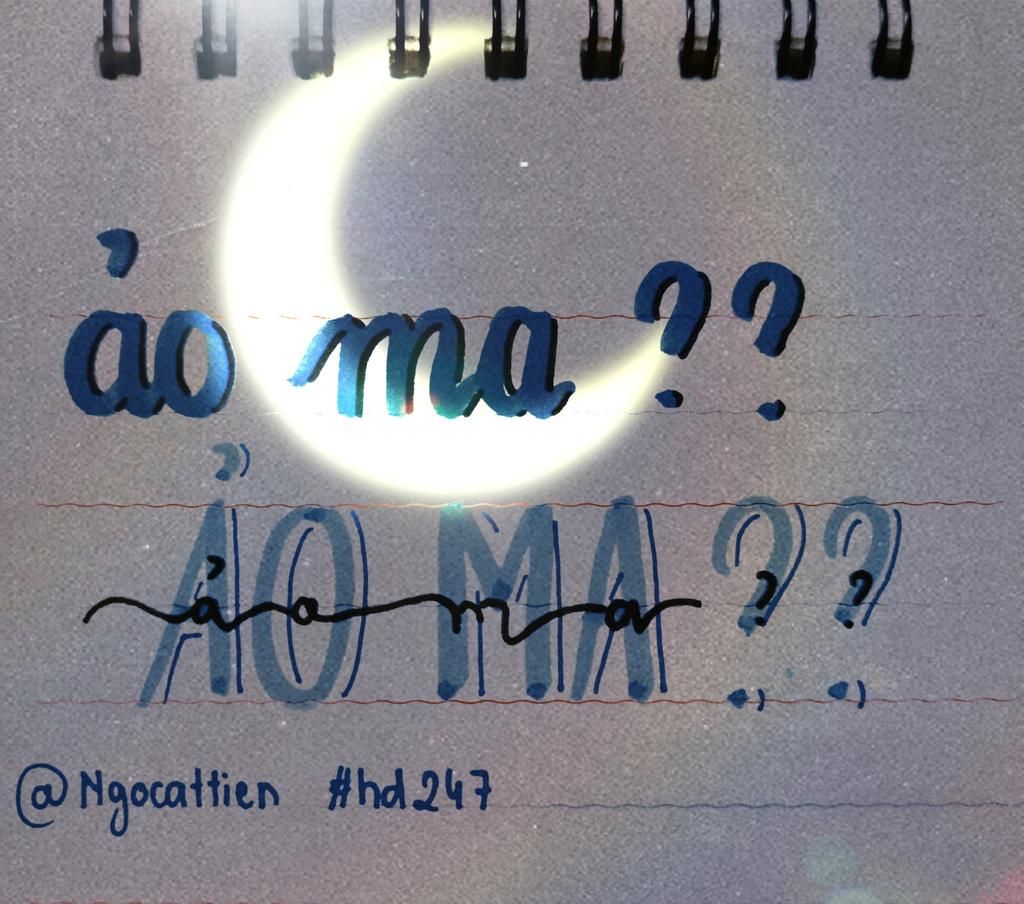 ảo ma ??
ẢO MA ??
ảo ma ??
@Ngocattien #hd247